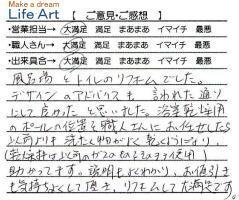 Make a dream
Life Art 【 ご意見・ご感想 】
・営業担当→ 大満足 満足 まあまあ イマイチ 最悪
・職人さん→ 大満足 満足 まあまあ イマイチ 最悪
・出来具合→ 大満足 満足 まあまあ イマイチ 最悪
風呂場とトイレのリフォームでした。
デザインのアドバイスも 言われた通り
にして良かったと思いました。浴室乾燥用
のポールの位置を職人さんにお任せしたら
以前よりも洗たく物が良く乾くようになり、
助かってます。説明もよくわかり、お値引き
も気持ちよくして頂き、リフォームして大満足です。